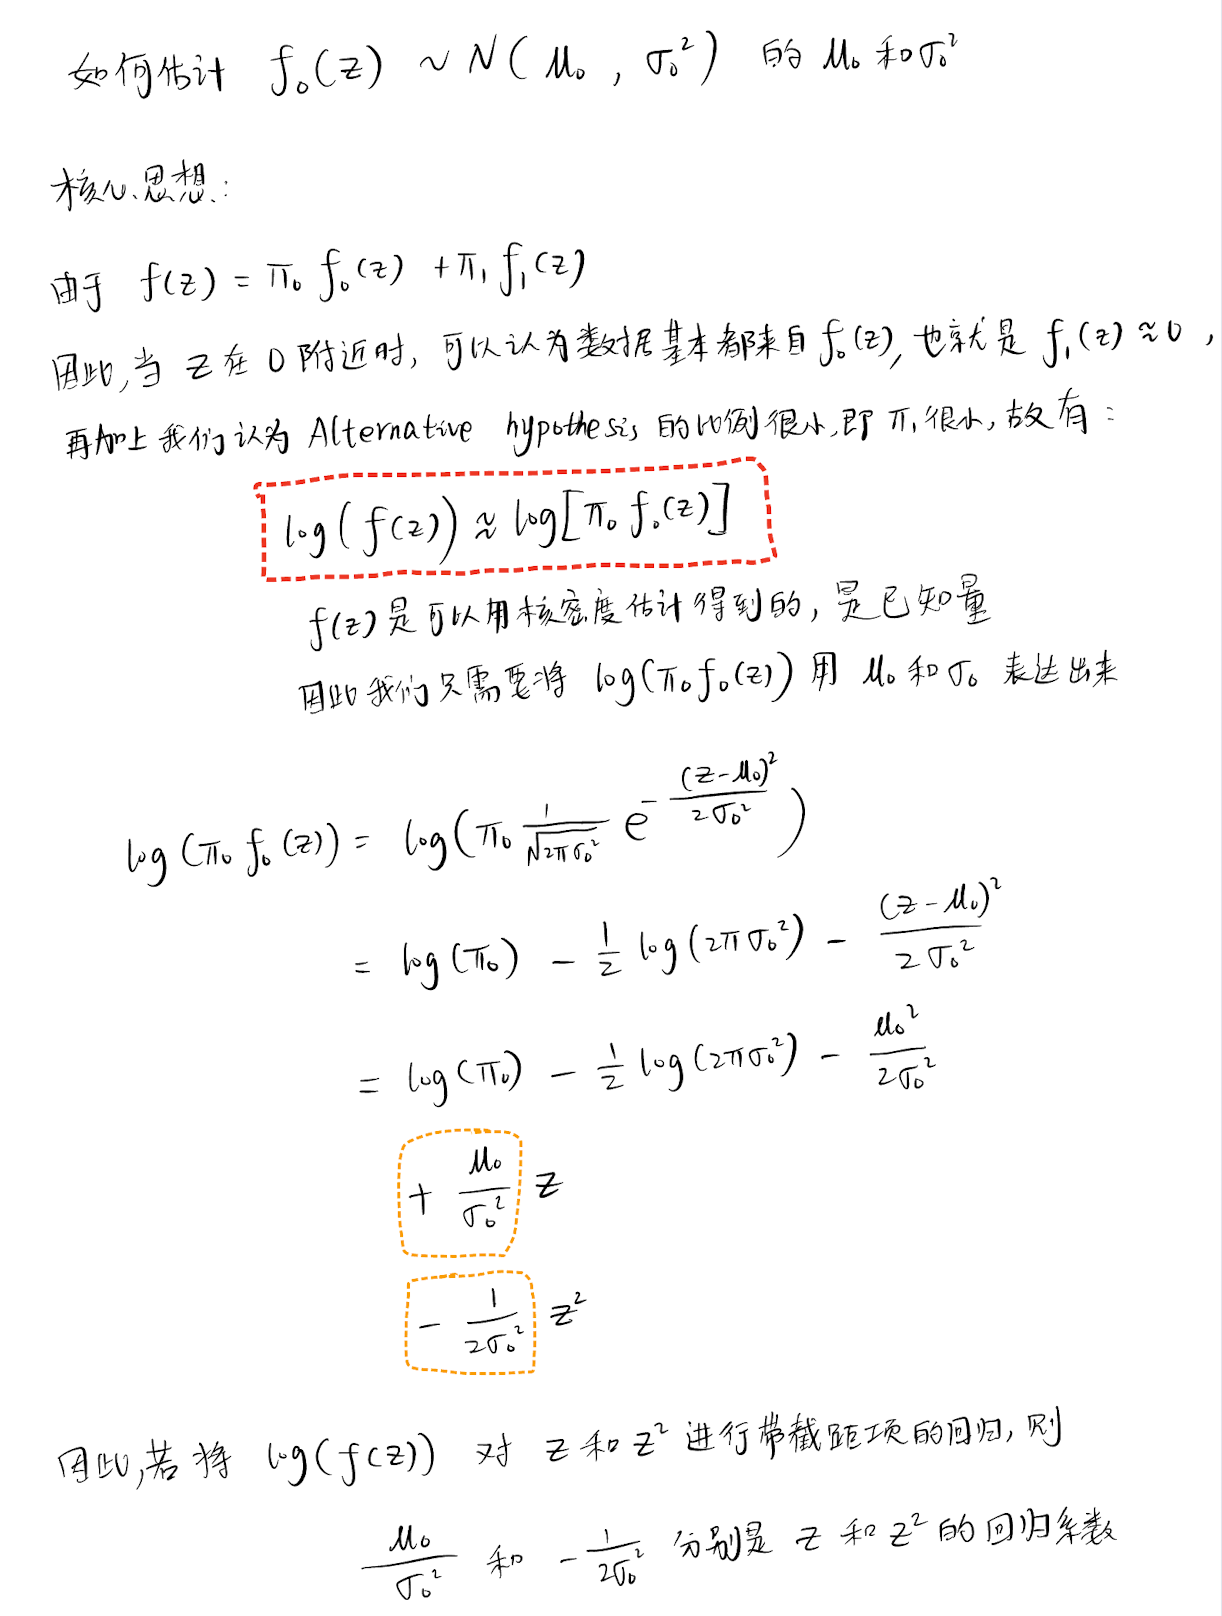 如何估计 f₀(z) ~ N(μ₀, σ₀²) 的 μ₀ 和 σ₀²
核心思想:
由于 f(z) = π₀ f₀(z) + π₁ f₁(z)
因此,当 z 在 0 附近时, 可以认为数据基本都来自 f₀(z), 也就是 f₁(z) ≈ 0,
再加上我们认为 Alternative hypothesis 的比例很小,即 π₁ 很小, 故有:
log(f(z)) ≈ log[π₀ f₀(z)]
f(z) 是可以用核密度估计得到的, 是已知量
因此我们只需要将 log(π₀f₀(z)) 用 μ₀ 和 σ₀ 表达出来
log(π₀ f₀(z)) = log(π₀ 1/√(2πσ₀²) e^(-(z-μ₀)²/(2σ₀²)))
= log(π₀) - 1/2 log(2πσ₀²) - (z-μ₀)²/(2σ₀²)
= log(π₀) - 1/2 log(2πσ₀²) - μ₀²/(2σ₀²)
+ μ₀/σ₀² z
- 1/(2σ₀²) z²
因此,若将 log(f(z)) 对 z 和 z² 进行带截距项的回归, 则
μ₀/σ₀² 和 -1/(2σ₀²) 分别是 z 和 z² 的回归系数